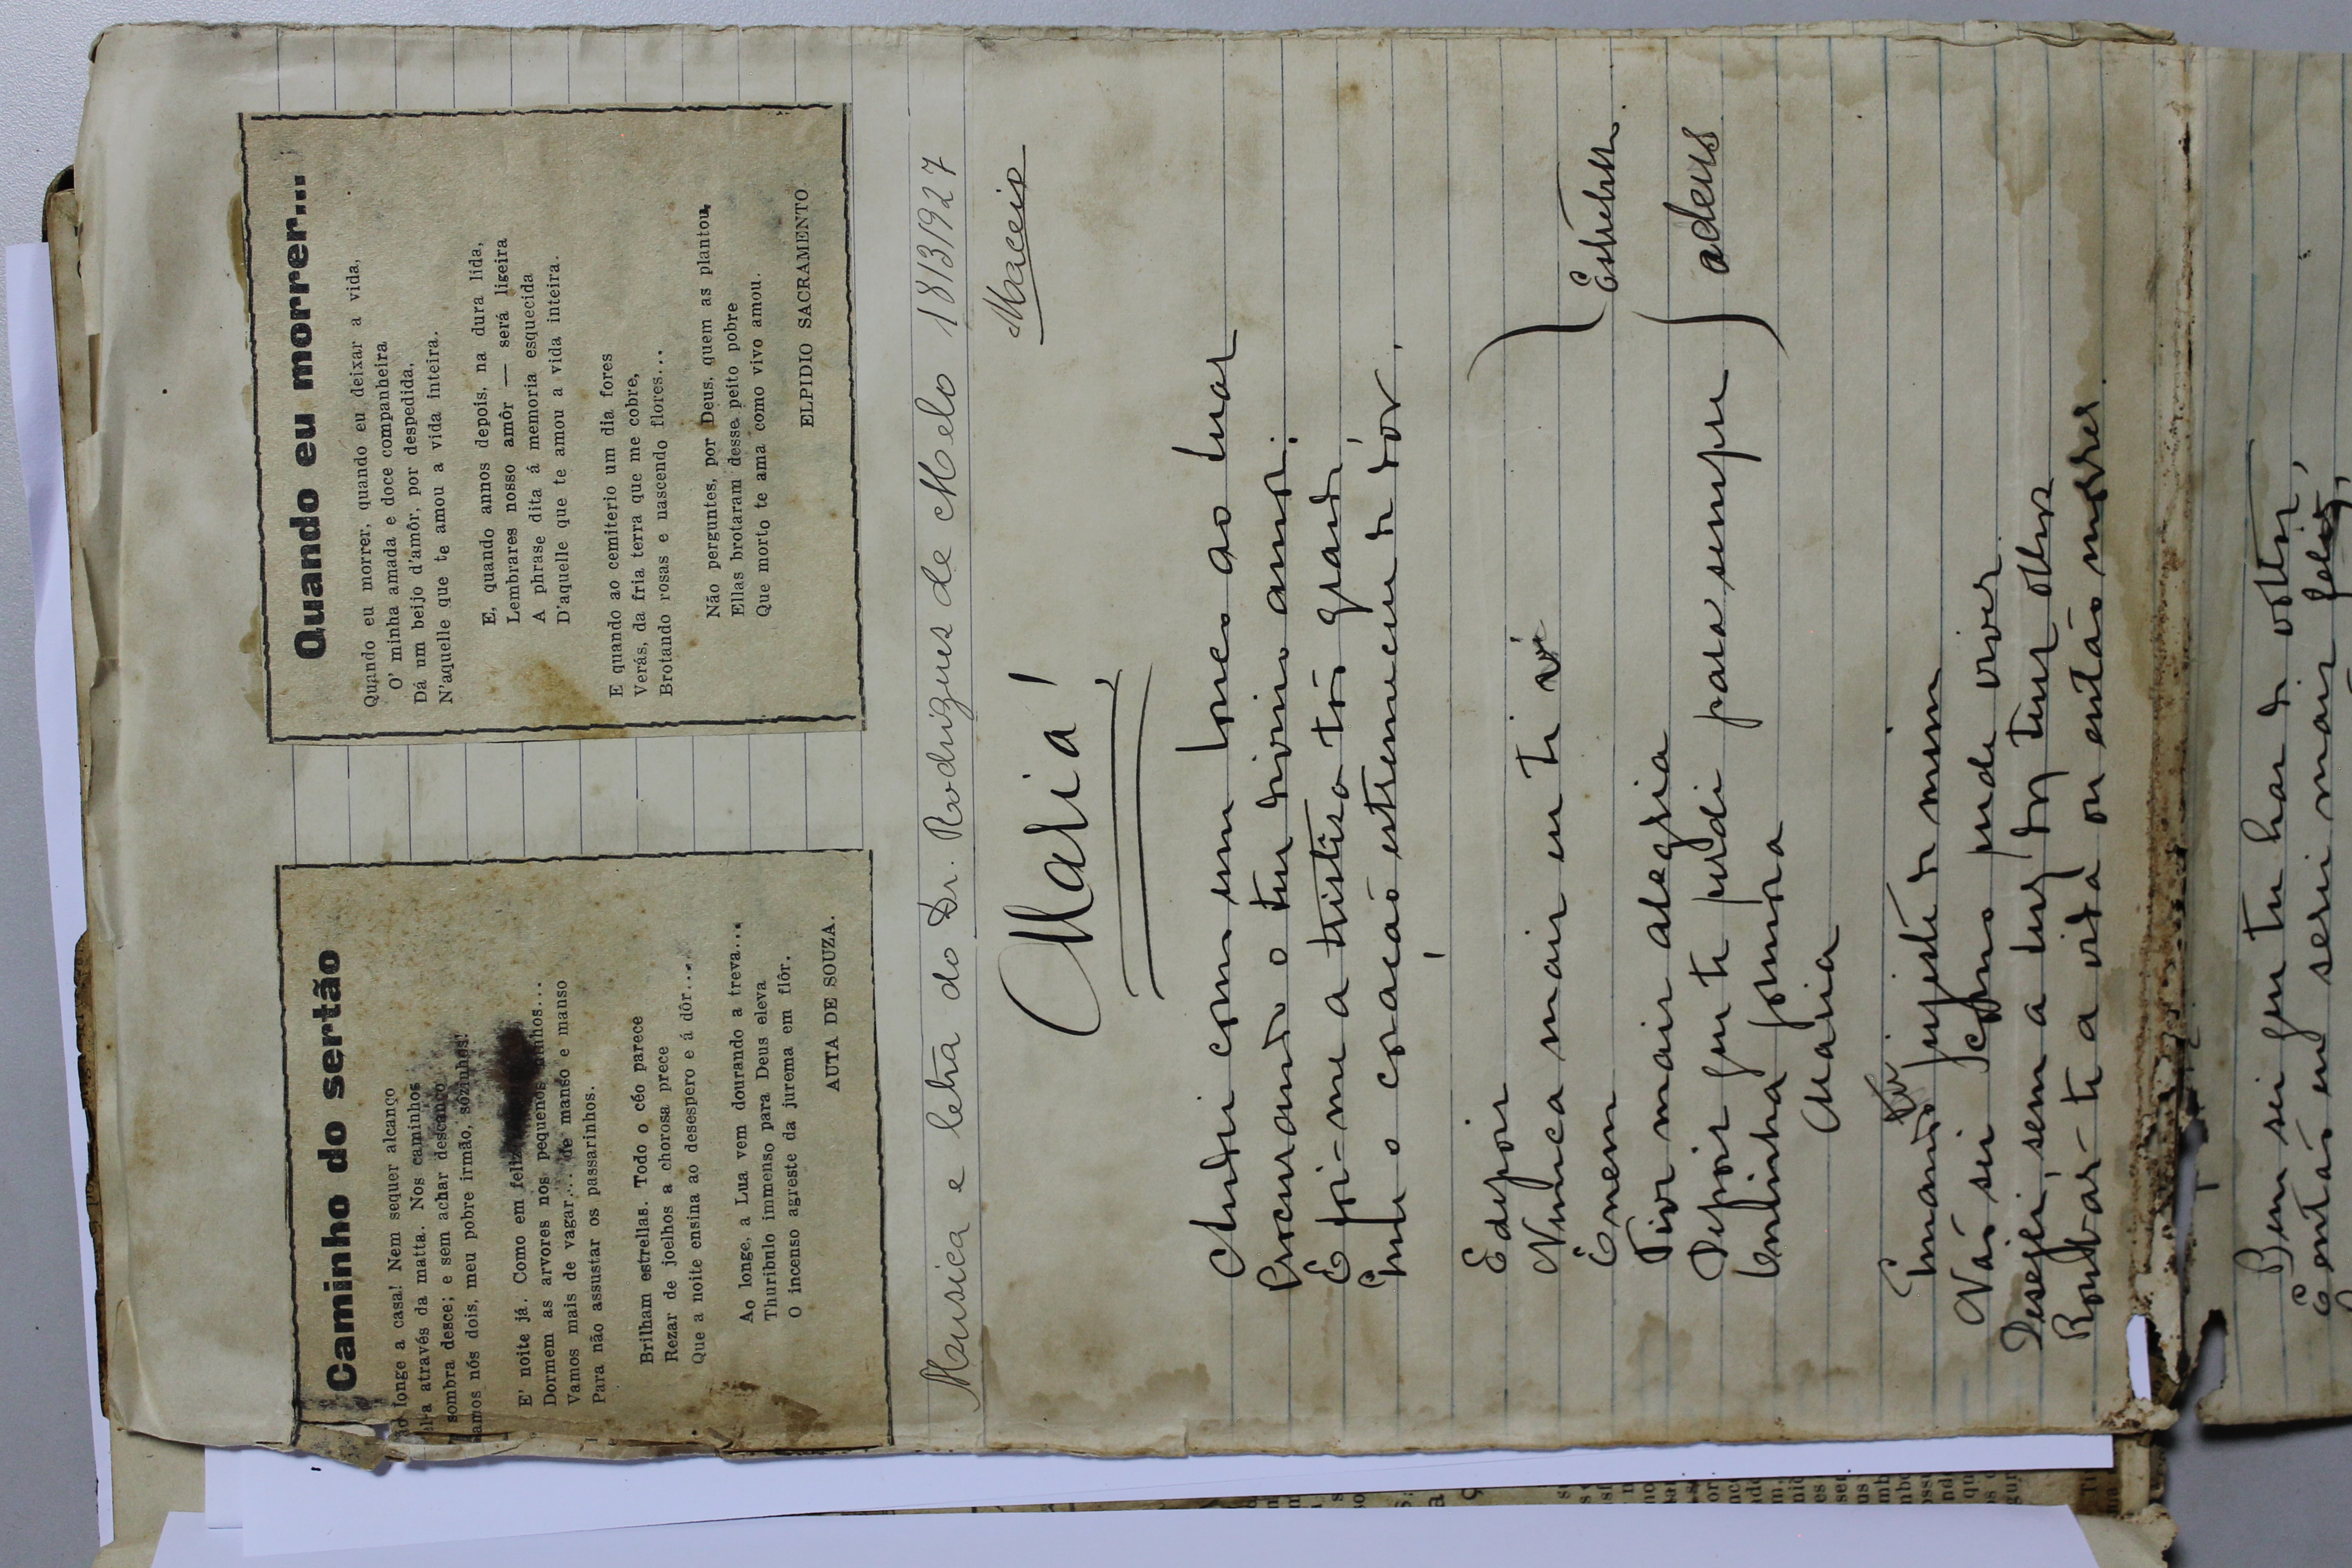 Caminho do sertão
longe a casa! Nem sequer alcanço
através da matta. Nos caminhos
sombra desce; e sem achar descanço
amos nós dois, meu pobre irmão, sozinhos!
E' noite já. Como em feliz
Dormem as arvores nos pequenos
Vamos mais de vagar... de manso e manso
Para não assustar os passarinhos.
Brilham estrellas. Todo o céo parece
Rezar de joelhos a chorosa prece
Que a noite ensina ao desespero e á dôr...
Ao longe, a Lua vem dourando a treva...
Thuribulo immenso para Deus eleva
O incenso agreste da jurema em flôr.
AUTA DE SOUZA.
Quando eu morrer...
Quando eu morrer, quando eu deixar a vida,
O' minha amada e doce companheira
Dá um beijo d'amôr, por despedida,
N'aquelle que te amou a vida inteira.
E, quando annos depois, na dura lida,
Lembrares nosso amôr — será ligeira
A phrase dita á memoria esquecida
D'aquelle que te amou a vida inteira.
E quando ao cemiterio um dia fores
Verás, da fria terra que me cobre,
Brotando rosas e nascendo flores...
Não perguntes, por Deus, quem as plantou,
Ellas brotaram desse peito pobre
Que morto te ama como vivo amou.
ELPIDIO SACRAMENTO
Musica e letra do Dr. Rodrigues de Melo 18/3/927
Maceio
Maria!
Andei como um louco ao luar
Procurando o teu divino amor.
E foi-me a tristeza tão grande
Que o coração estremeceu de dôr.
E depois
Nunca mais eu te vi
E nem
Tive mais alegria
Depois que te perdi para sempre
Estribilho
adeus
Maria
Quando tu fugiste de mim
Não sei como pude viver
Desejei, sem a luz dos teus olhos
Roubar-te a vida ou então morrer.
Bem sei que tu has de voltar,
E então eu serei mais feliz,